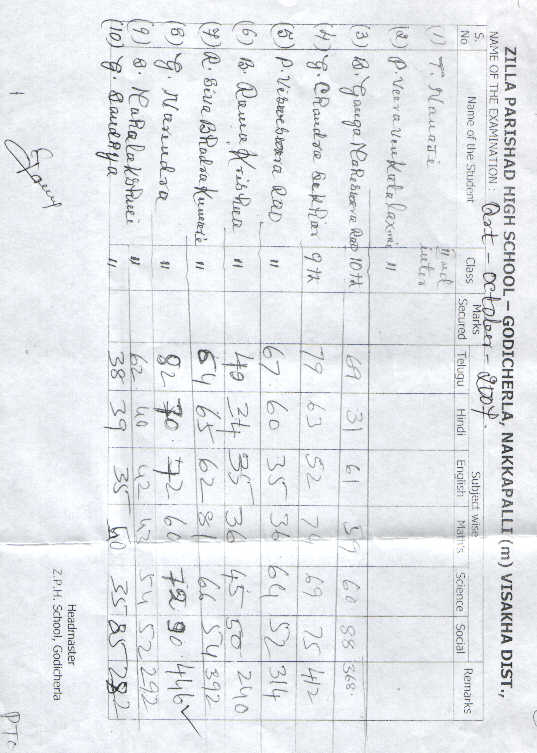 ZILLA PARISHAD HIGH SCHOOL – GODICHERLA, NAKKAPALLI (m) VISAKHA DIST.,
NAME OF THE EXAMINATION : Oct - October - 2007.
S. No Name of the Student Class Marks Secured Subject wise Remarks
Telugu Hindi English Maths Science Social
(1) T. Manasi IInd inter
(2) P. Veera Venkata Laxmi "
(3) B. Ganga Maheswara Rao 10th 69 31 61 59 60 88 368.
(4) G. Chandra Sekhar 9th 79 63 52 74 69 75 412
(5) P. Visweswara Rao " 67 60 35 36 64 52 314
(6) B. Rama Krishna " 49 24 35 36 45 50 240
(7) R. Siva Bhadra Kumari " 64 65 62 81 66 54 392
(8) G. Narendra " 82 70 72 60 72 90 446 ✓
(9) D. Mahalakshmi " 62 40 42 42 54 52 292
(10) G. Sandhya " 38 39 35 40 35 85 282
Headmaster
Z.P.H. School, Godicherla
PTO